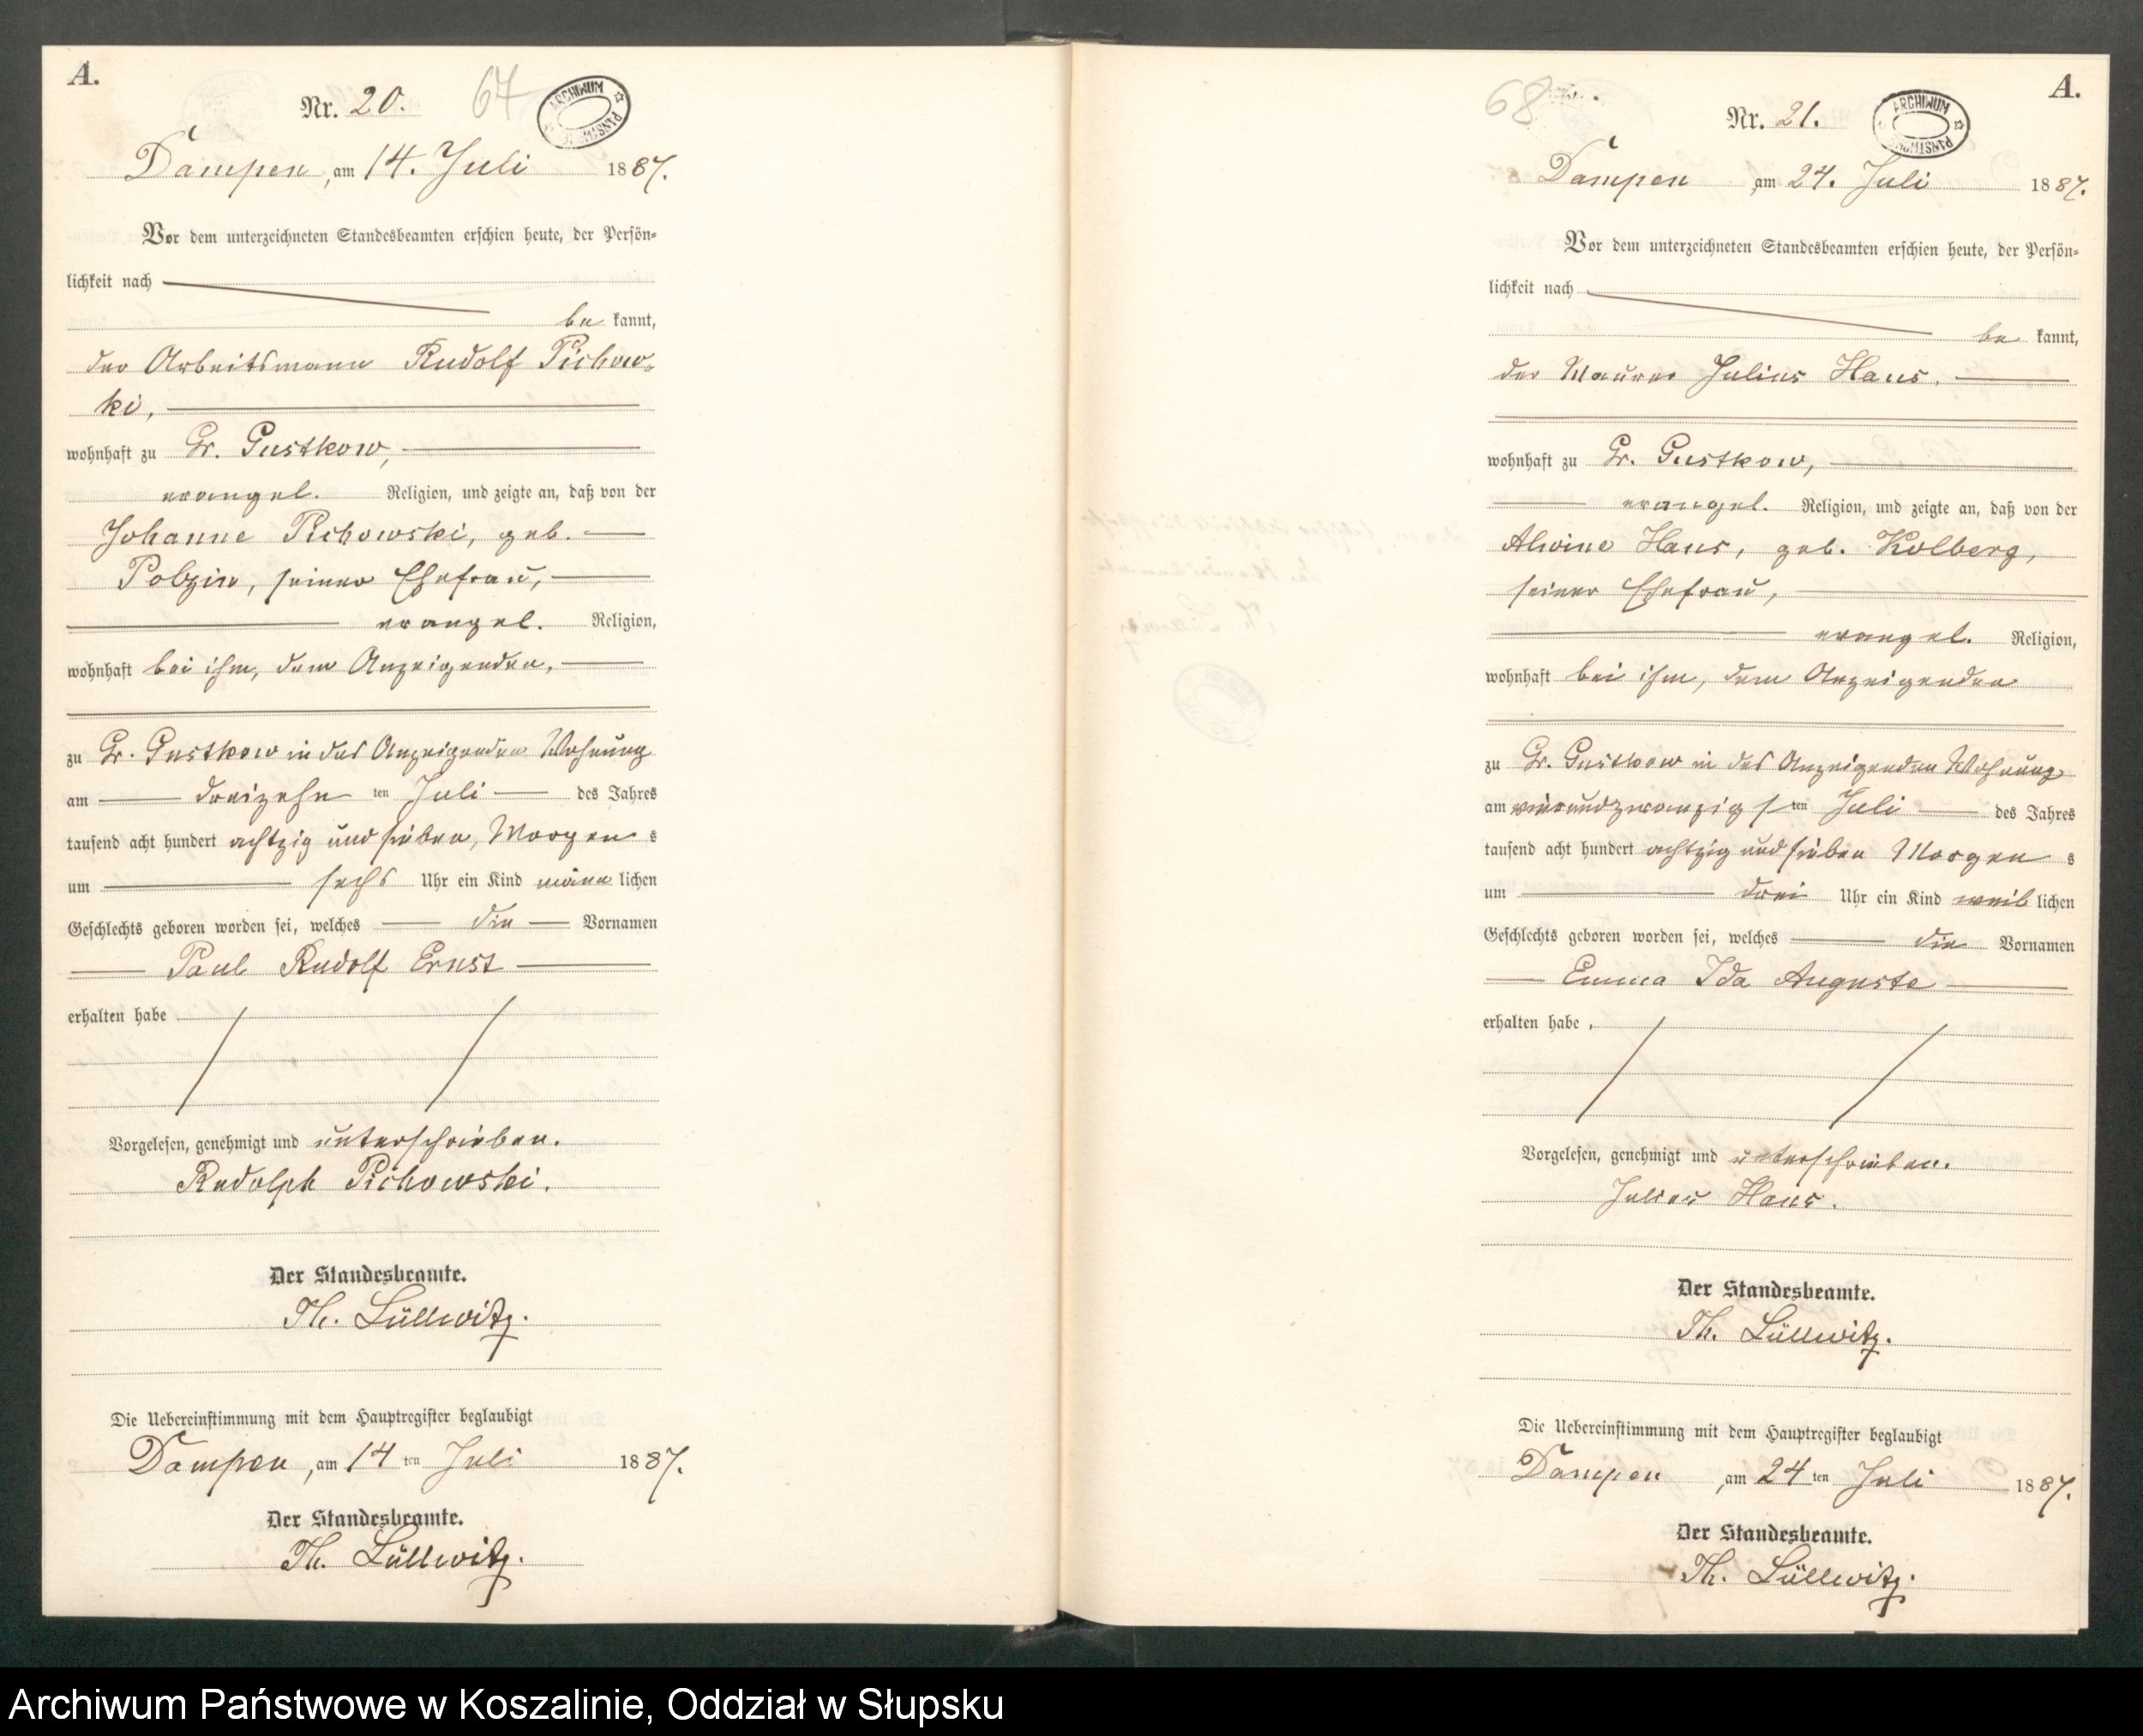 A.
Nr. 20.
67
ARCHIWUM PAŃSTWOWE
Dampen, am 14. Juli 1887.
Vor dem unterzeichneten Standesbeamten erschien heute, der Persön=
lichkeit nach
be kannt,
der Arbeitsmann Rudolf Pichow-
ki,
wohnhaft zu Gr. Gustkow,
evangel. Religion, und zeigte an, daß von der
Johanne Pichowski, geb.
Polzin, seiner Ehefrau,
evangel. Religion,
wohnhaft bei ihm, dem Anzeigenden,
zu Gr. Gustkow in des Anzeigenden Wohnung
am dreizehn ten Juli des Jahres
tausend acht hundert achtzig und sieben, Morgen s
um sechs Uhr ein Kind männ lichen
Geschlechts geboren worden sei, welches die Vornamen
Paul Rudolf Ernst
erhalten habe
Vorgelesen, genehmigt und unterschrieben.
Rudolph Pichowski.
Der Standesbeamte.
Th. Lüllwitz.
Die Uebereinstimmung mit dem Hauptregister beglaubigt
Dampen, am 14 ten Juli 1887.
Der Standesbeamte.
Th. Lüllwitz.
68
A.
Nr. 21.
ARCHIWUM PAŃSTWOWE
Dampen am 24. Juli 1887.
Vor dem unterzeichneten Standesbeamten erschien heute, der Persön=
lichkeit nach
be kannt,
der Maurer Julius Haus.
wohnhaft zu Gr. Gustkow,
evangel. Religion, und zeigte an, daß von der
Alwine Haus, geb. Kolberg,
seiner Ehefrau,
evangel. Religion,
wohnhaft bei ihm, dem Anzeigenden
zu Gr. Gustkow in des Anzeigenden Wohnung
am vierundzwanzig s ten Juli des Jahres
tausend acht hundert achtzig und sieben Morgen s
um drei Uhr ein Kind weib lichen
Geschlechts geboren worden sei, welches die Vornamen
Emma Ida Auguste
erhalten habe.
Vorgelesen, genehmigt und unterschrieben.
Julius Haus.
Der Standesbeamte.
Th. Lüllwitz.
Die Uebereinstimmung mit dem Hauptregister beglaubigt
Dampen, am 24 ten Juli 1887.
Der Standesbeamte.
Th. Lüllwitz.
Archiwum Państwowe w Koszalinie, Oddział w Słupsku